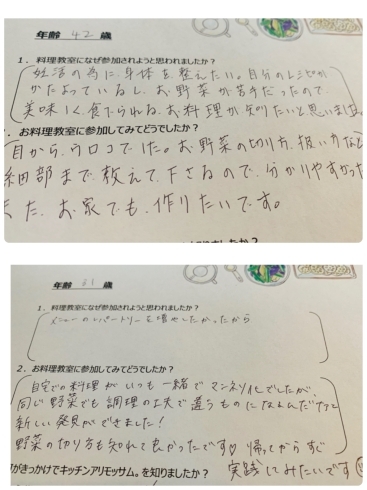 年齢 42 歳
1. 料理教室になぜ参加されようと思われましたか?
妊活の為に、身体を、整えたい。自分のレシピが
かたよっているし、お野菜が苦手だったので、
美味しく、食べられる、お料理が知りたいと思いました
. お料理教室に参加してみてどうでしたか?
目から、ウロコでした。お野菜の切り方、扱い方など
細部まで、教えて、下さるので、分かりやすかった
また、お家でも、作りたいです。
ましたか?
年齢 31 歳
1. 料理教室になぜ参加されようと思われましたか?
メニューのレパートリーを増やしたかったから
2. お料理教室に参加してみてどうでしたか?
自宅での料理がいつも一緒でマンネリ化でしたが、
同じ野菜でも調理の工夫で違うものになるんだなと
新しい発見ができました!
野菜の切り方も知れて良かったです♡ 帰ってからすぐ
がきっかけでキッチンアリモッサム。を知りましたか? 実践してみたいです